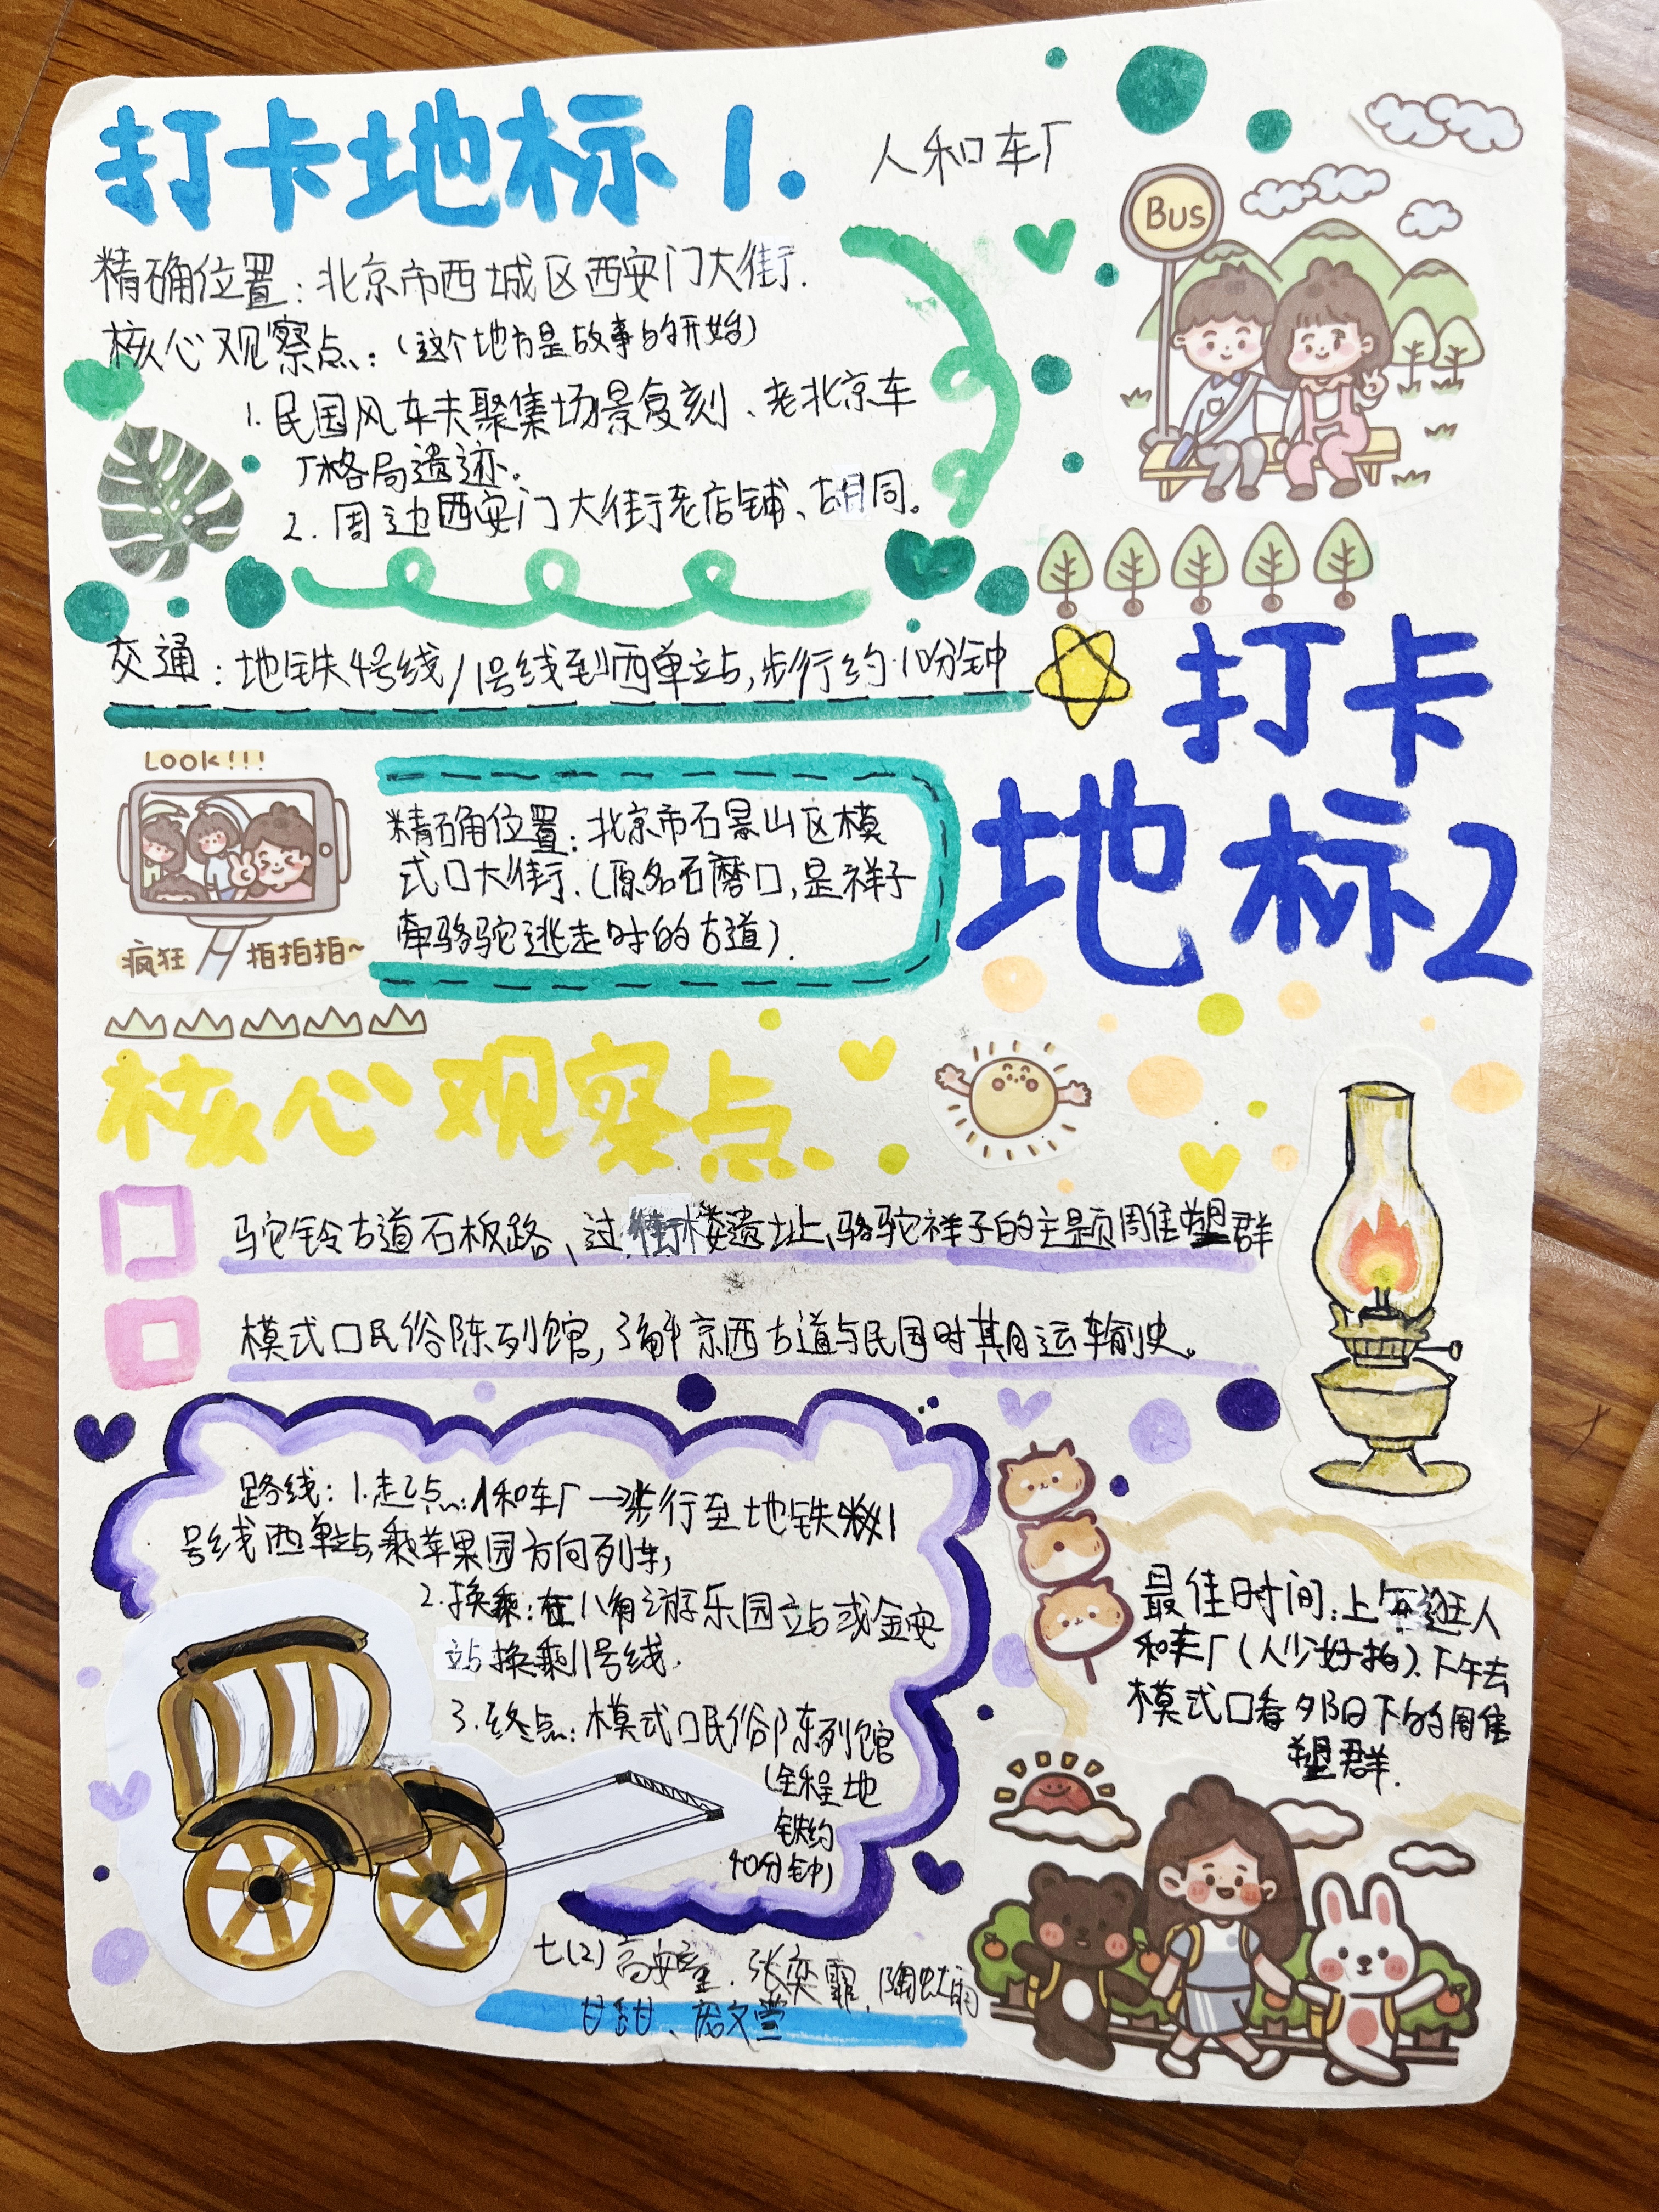 打卡地标 1.
人和车厂
Bus
精确位置：北京市西城区西安门大街.
核心观察点：（这个地方是故事的开始）
1. 民国风车夫聚集场景复刻、老北京车
厂格局遗迹。
2. 周边西安门大街老店铺、胡同。
交通：地铁4号线/1号线到西单站,步行约10分钟
打卡
地标2
LOOK!!!
疯狂 拍拍拍~
精确位置：北京市石景山区模
式口大街.（原名石磨口,是祥子
牵骆驼逃走时的古道）.
核心观察点.
驼铃古道石板路、过街楼遗址、骆驼祥子的主题周隹塑群
模式口民俗陈列馆,了解京西古道与民国时期运输史。
路线：1.起点：人和车厂→步行至地铁1
号线西单站,乘苹果园方向列车,
2.换乘：在八角游乐园站或金安
站换乘11号线.
3.终点：模式口民俗陈列馆
（全程地
铁约
40分钟）
最佳时间：上午逛人
和车厂(人少好拍).下午去
模式口看夕阳下的周隹
塑群.
七(2) 高安 . 张奕霏,陶
甘甜、 文萱